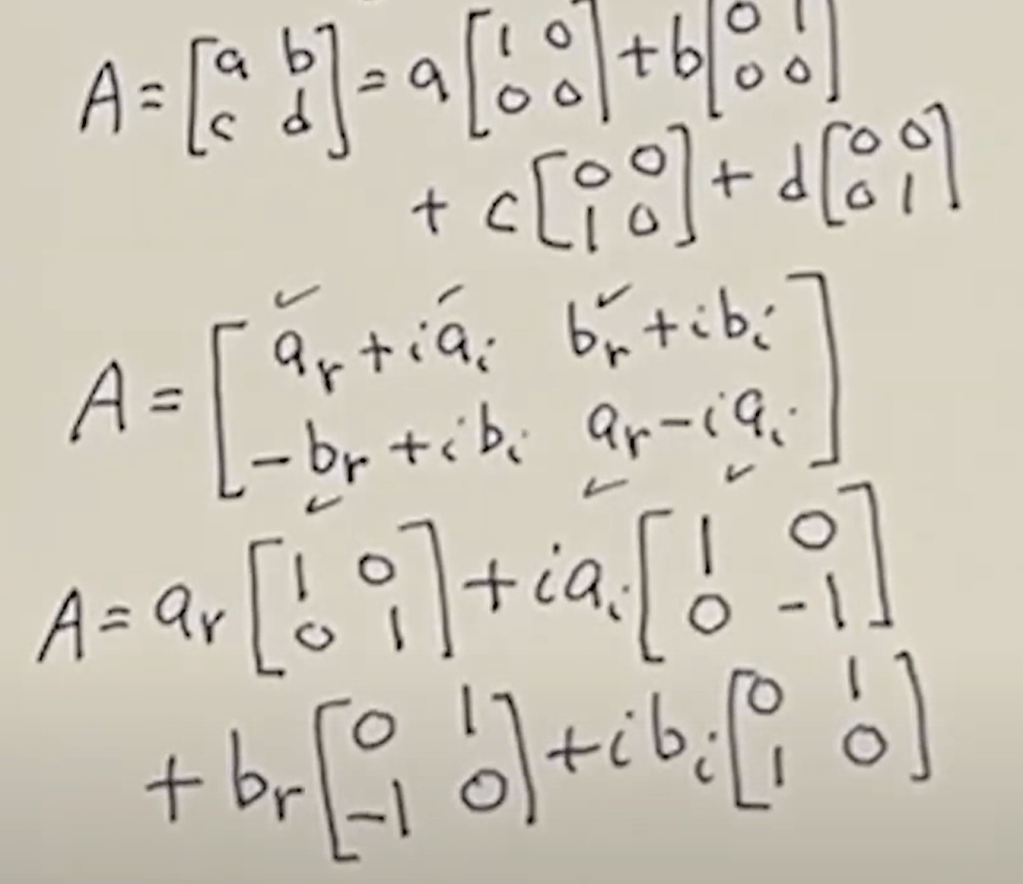 A = [a b; c d] = a [1 0; 0 0] + b [0 1; 0 0]
+ c [0 0; 1 0] + d [0 0; 0 1]
A = [a_r + i a_i b_r + i b_i; -b_r + i b_i a_r - i a_i]
A = a_r [1 0; 0 1] + i a_i [1 0; 0 -1]
+ b_r [0 1; -1 0] + i b_i [0 1; 1 0]